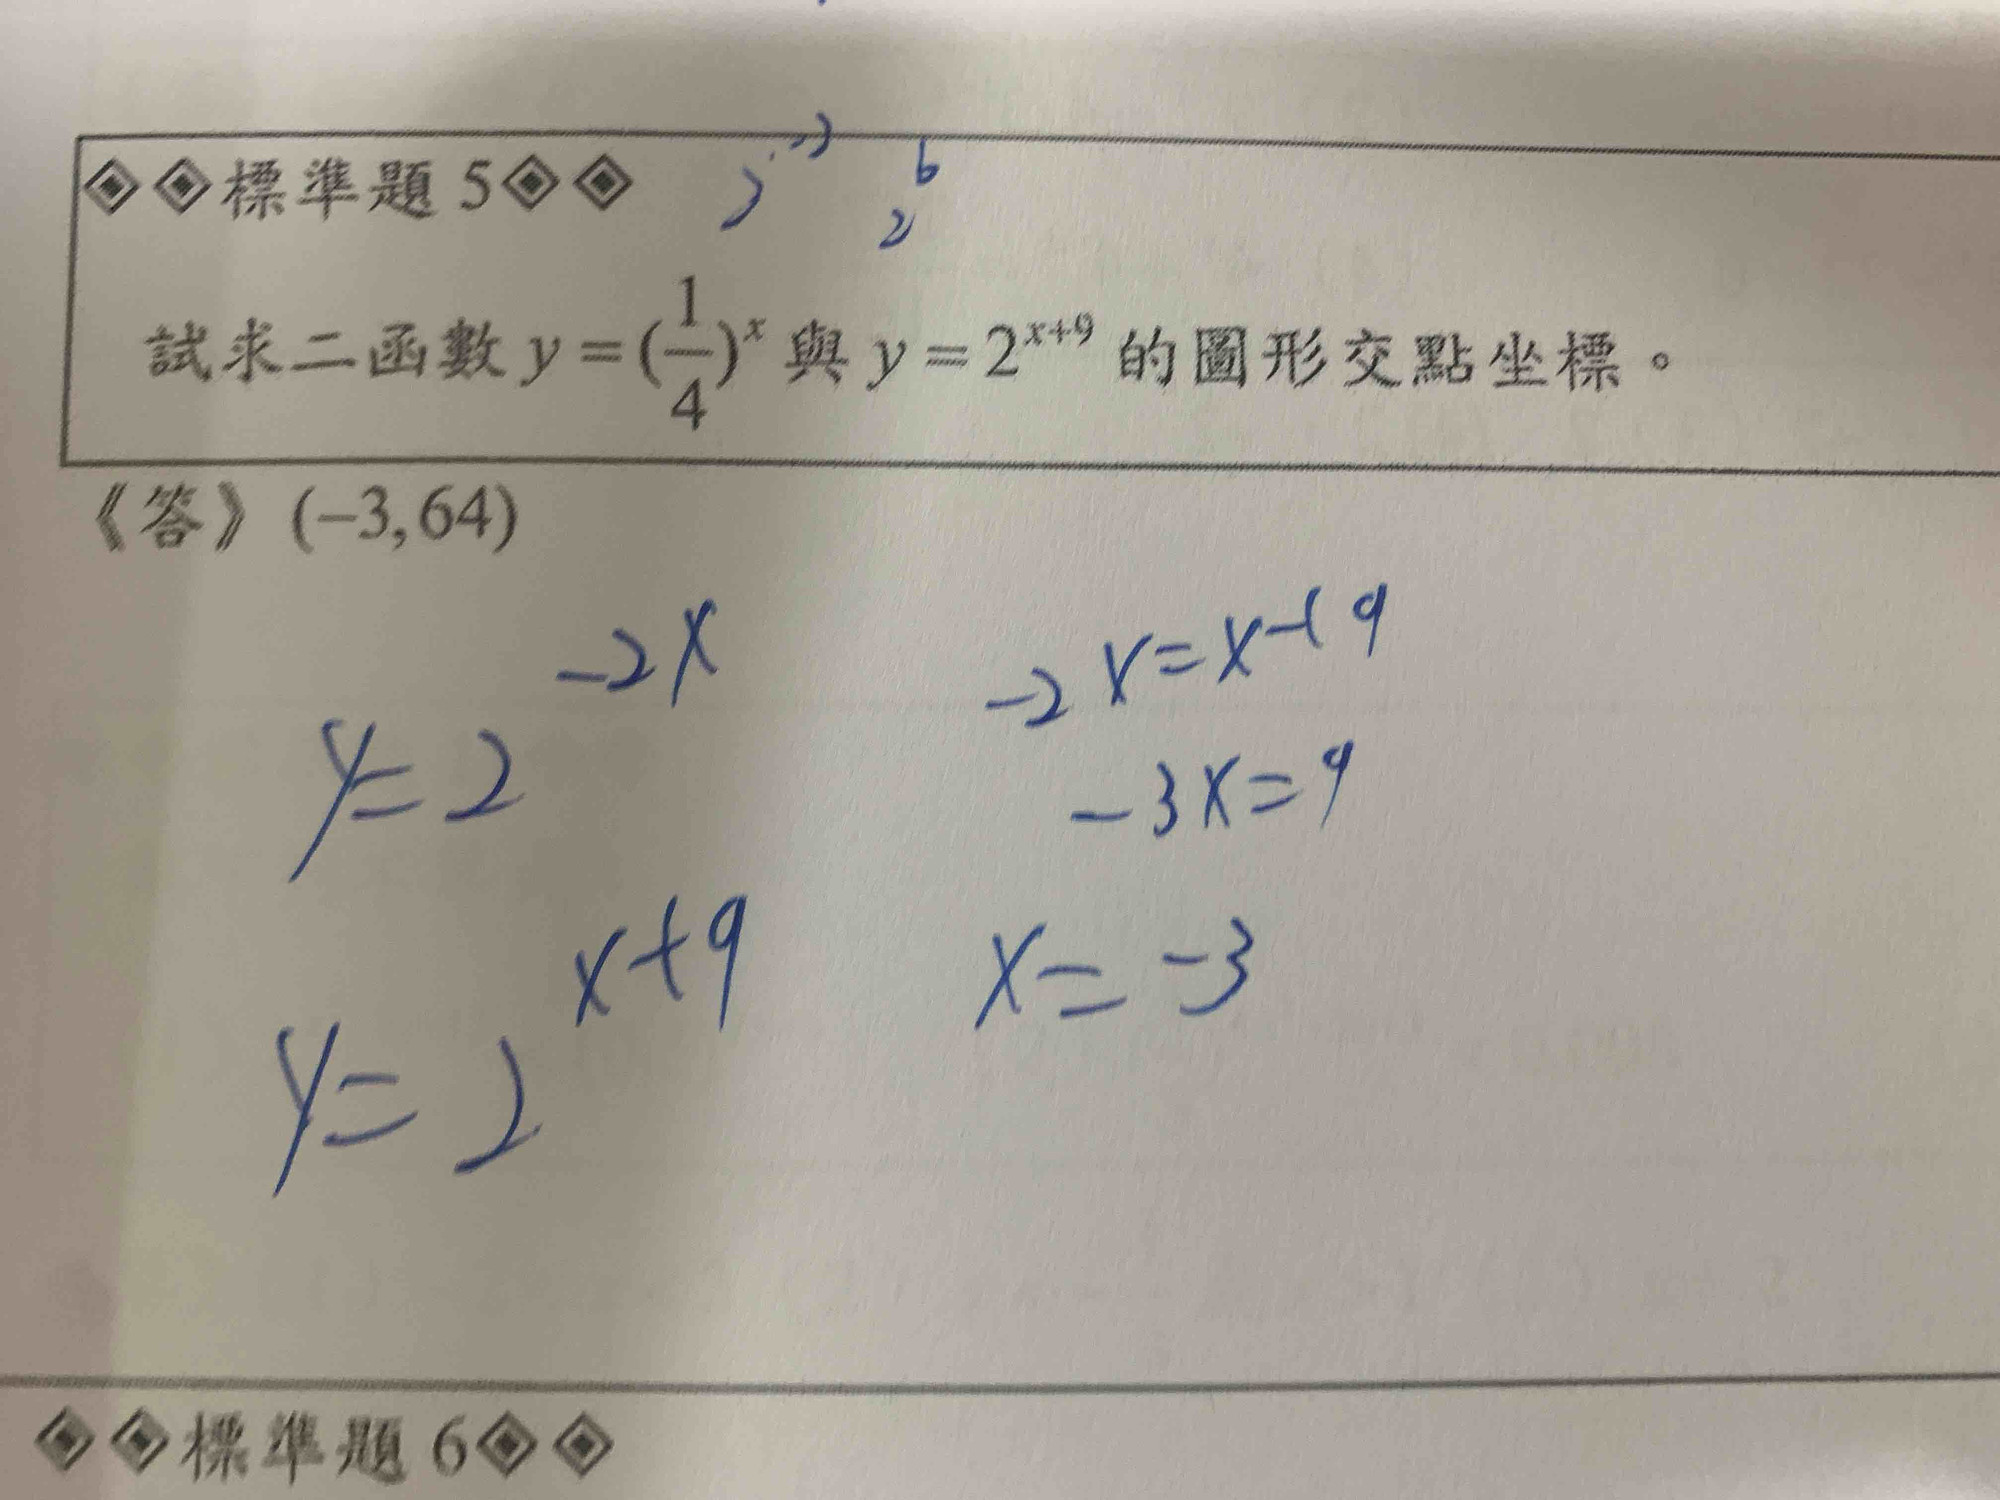 ◈◈標準題 5◈◈
2 6
試求二函數 y = (1/4)^x 與 y = 2^{x+9} 的圖形交點坐標。
《答》(−3, 64)
y = 2^{-2x}
-2x = x+9
-3x = 9
y = 2^{x+9}
x = -3
◈◈標準題 6◈◈